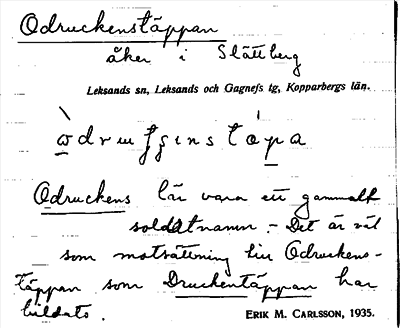 Odruckenstäppan
åker i Slättberg
Leksands sn, Leksands och Gagnefs tg, Kopparbergs län.
Odruckens lär vara ett gammalt
soldatnamn. - Det är väl
som motsättning hir Odruckens-
täppan som Druckentäppan har
bildats.
ERIK M. CARLSSON, 1935.